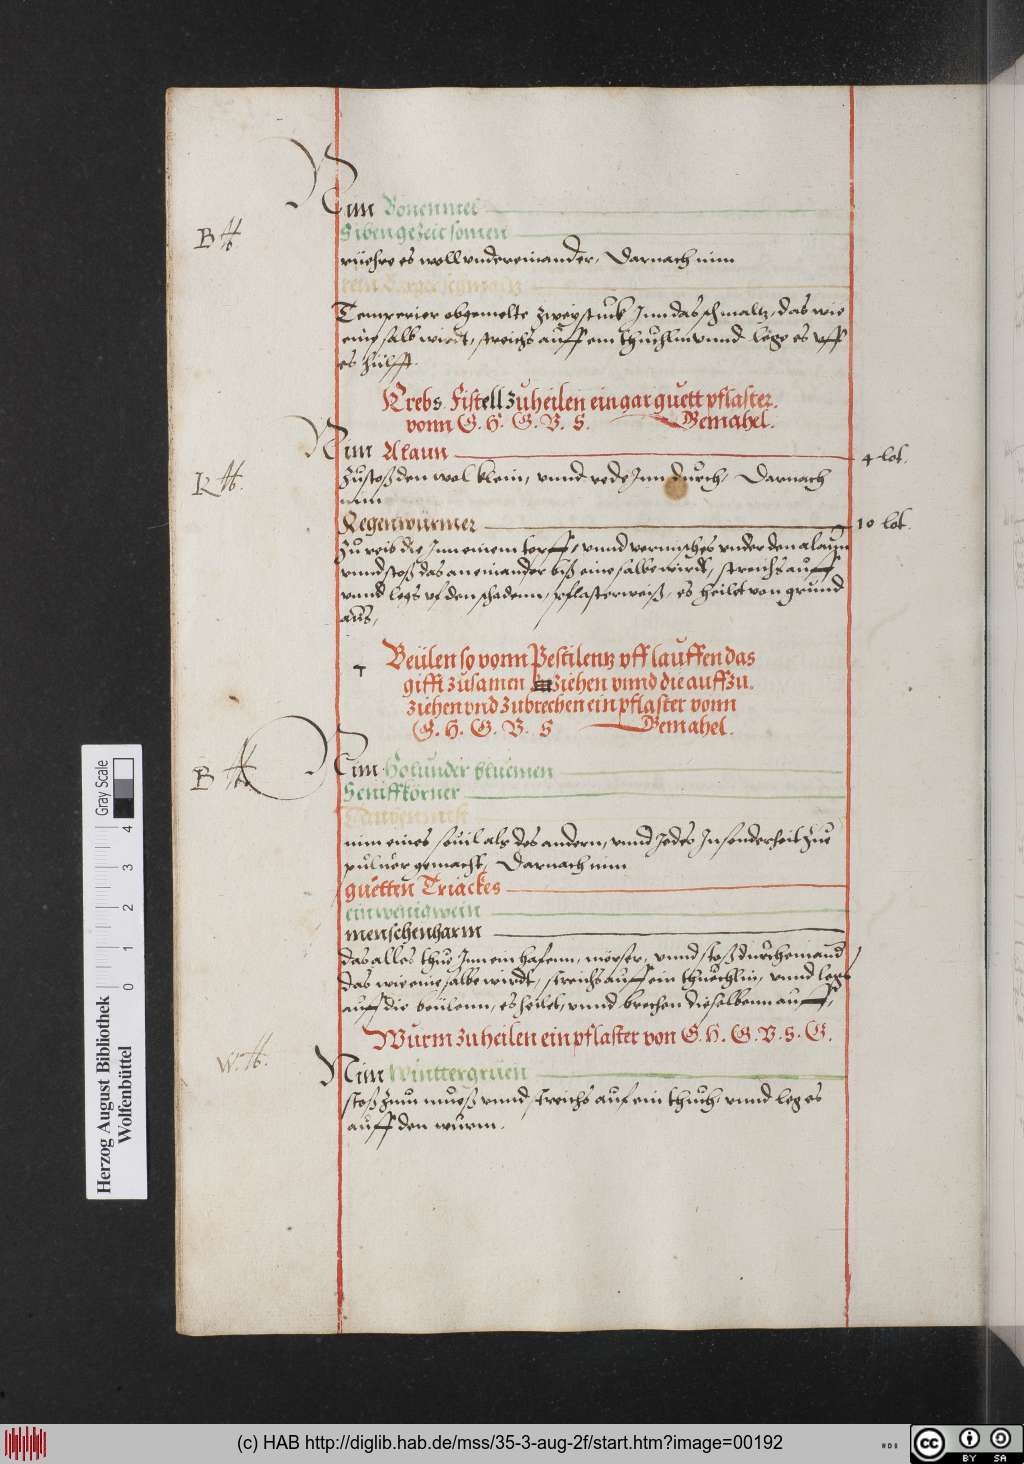 Nim Bonenmel
Sibengezeit somen
ruehre es woll undereinander, Darnach nim
rein Berger schmaltz
Temperier obgemelte zwey stuck Jnn das schmaltz, das wie
eine salb wirdt, streichs auff ein thuchlin unnd lege es uff
es hülfft.
Krebs Fistell zu heilen ein gar guett pflaster.
vonn G. H. G. V. S. Gemahel.
Nim Alaun 4 lot.
Zustoß den wol klein, unnd rede Jnn durch, Darnach
nim
Regenwürmer 10 lot.
Zu reib die Jnn einem korff, unnd vermisches under den alaun
unnd stoß das an einander biß eine salbe wirdt, streichs auff
unnd legs uf den schadenn, pflasterweiß, es heilet von grund
aus,
Beülen so vonn Pestilentz uff lauffen das
gifft zusamen ziehen unnd die auff zu
ziehen und zubrechen ein pflaster vonn
G. H. G. V. S Gemahel.
Nim Holunder bluemen
Seniffkörner
Taubenmist
nim eines souil als des andern, unnd Jedes Jnsonderheit zue
puluer gemacht, Darnach nim
guetten Triackes
ein wenig wein
menschenharm
das alles thue Jnn ein hafenn, mörser, unnd stoß durcheinand
das wie eine salbe wirdt, streichs auff ein thuechlin, unnd legs
auff die beülenn, es heilet, unnd brechen dieselbenn auff,
Wurm zu heilen ein pflaster von G. H. G. V. S. G.
Nim Winttergrüen
stoß zuu mueß unnd streichs auf ein thuch, unnd leg es
auff den wurm.
Herzog August Bibliothek
Wolfenbüttel
0 1 2 3 4
Gray Scale
(c) HAB http://diglib.hab.de/mss/35-3-aug-2f/start.htm?image=00192
cc BY SA